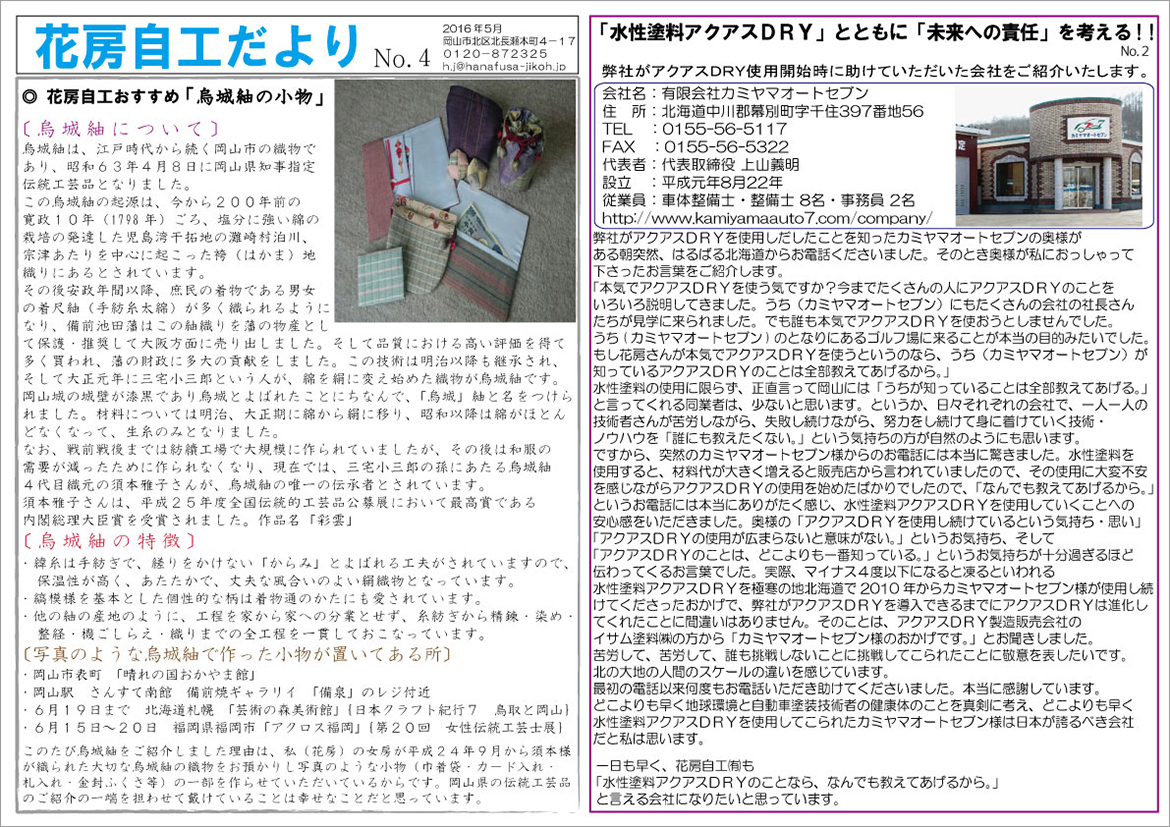 花房自工だより No. 4
2016年5月
岡山市北区北長瀬本町4-17
0120-872325
h.j@hanafusa-jikoh.jp
◎ 花房自工おすすめ「烏城紬の小物」
〔烏城紬について〕
烏城紬は、江戸時代から続く岡山市の織物で
あり、昭和63年4月8日に岡山県知事指定
伝統工芸品となりました。
この烏城紬の起源は、今から200年前の
寛政10年（1798年）ごろ、塩分に強い綿の
栽培の発達した児島湾干拓地の灘崎村泊川、
宗津あたりを中心に起こった袴（はかま）地
織りにあるとされています。
その後安政年間以降、庶民の着物である男女
の着尺紬（手紡糸太綿）が多く織られるように
なり、備前池田藩はこの紬織りを藩の物産とし
て保護・推奨して大阪方面に売り出しました。そして品質における高い評価を得て
多く買われ、藩の財政に多大の貢献をしました。この技術は明治以降も継承され、
そして大正元年に三宅小三郎という人が、綿を絹に変え始めた織物が烏城紬です。
岡山城の城壁が漆黒であり烏城とよばれたことにちなんで、「烏城」紬と名をつけら
れました。材料については明治、大正期に綿から絹に移り、昭和以降は綿がほとん
どなくなって、生糸のみとなりました。
なお、戦前戦後までは紡績工場で大規模に作られていましたが、その後は和服の
需要が減ったために作られなくなり、現在では、三宅小三郎の孫にあたる烏城紬
4代目織元の須本雅子さんが、烏城紬の唯一の伝承者とされています。
須本雅子さんは、平成25年度全国伝統的工芸品公募展において最高賞である
内閣総理大臣賞を受賞されました。作品名『彩雲』
〔烏城紬の特徴〕
・緯糸は手紡ぎで、縒りをかけない「からみ」とよばれる工夫がされていますので、
保温性が高く、あたたかで、丈夫な風合いのよい絹織物となっています。
・縞模様を基本とした個性的な柄は着物通のかたにも愛されています。
・他の紬の産地のように、工程を家から家への分業とせず、糸紡ぎから精錬・染め・
整経・機ごしらえ・織りまでの全工程を一貫しておこなっています。
〔写真のような烏城紬で作った小物が置いてある所〕
・岡山市表町 「晴れの国おかやま館」
・岡山駅 さんすて南館 備前焼ギャラリイ 「備泉」のレジ付近
・6月19日まで 北海道札幌 「芸術の森美術館」{日本クラフト紀行7 鳥取と岡山}
・6月15日～20日 福岡県福岡市「アクロス福岡」{第20回 女性伝統工芸士展}
このたび烏城紬をご紹介しました理由は、私（花房）の女房が平成24年9月から須本様
が織られた大切な烏城紬の織物をお預かりし写真のような小物（巾着袋・カード入れ・
札入れ・金封ふくさ等）の一部を作らせていただいているからです。岡山県の伝統工芸品
のご紹介の一端を担わせて戴けていることは幸せなことだと思っています。
「水性塗料アクアスDRY」とともに「未来への責任」を考える!!
No.2
弊社がアクアスDRY使用開始時に助けていただいた会社をご紹介いたします。
会社名：有限会社カミヤマオートセブン
住　所：北海道中川郡幕別町字千住397番地56
TEL　：0155-56-5117
FAX　：0155-56-5322
代表者：代表取締役 上山義明
設立　：平成元年8月22年
従業員：車体整備士・整備士 8名・事務員 2名
http://www.kamiyamaauto7.com/company/
カミヤマオートセブン
弊社がアクアスDRYを使用しだしたことを知ったカミヤマオートセブンの奥様が
ある朝突然、はるばる北海道からお電話くださいました。そのとき奥様が私におっしゃって
下さったお言葉をご紹介します。
「本気でアクアスDRYを使う気ですか？今までたくさんの人にアクアスDRYのことを
いろいろ説明してきました。うち（カミヤマオートセブン）にもたくさんの会社の社長さん
たちが見学に来られました。でも誰も本気でアクアスDRYを使おうとしませんでした。
うち（カミヤマオートセブン）のとなりにあるゴルフ場に来ることが本当の目的みたいでした。
もし花房さんが本気でアクアスDRYを使うというのなら、うち（カミヤマオートセブン）が
知っているアクアスDRYのことは全部教えてあげるから。」
水性塗料の使用に限らず、正直言って岡山には「うちが知っていることは全部教えてあげる。」
と言ってくれる同業者は、少ないと思います。というか、日々それぞれの会社で、一人一人の
技術者さんが苦労しながら、失敗し続けながら、努力をし続けて身に着けていく技術・
ノウハウを「誰にも教えたくない。」という気持ちの方が自然のようにも思います。
ですから、突然のカミヤマオートセブン様からのお電話には本当に驚きました。水性塗料を
使用すると、材料代が大きく増えると販売店から言われていましたので、その使用に大変不安
を感じながらアクアスDRYの使用を始めたばかりでしたので、「なんでも教えてあげるから。」
というお電話には本当にありがたく感じ、水性塗料アクアスDRYを使用していくことへの
安心感をいただきました。奥様の「アクアスDRYを使用し続けているという気持ち・思い」
「アクアスDRYの使用が広まらないと意味がない。」というお気持ち、そして
「アクアスDRYのことは、どこよりも一番知っている。」というお気持ちが十分過ぎるほど
伝わってくるお言葉でした。実際、マイナス4度以下になると凍るといわれる
水性塗料アクアスDRYを極寒の地北海道で2010年からカミヤマオートセブン様が使用し続
けてくださったおかげで、弊社がアクアスDRYを導入できるまでにアクアスDRYは進化し
てくれたことに間違いはありません。そのことは、アクアスDRY製造販売会社の
イサム塗料㈱の方から「カミヤマオートセブン様のおかげです。」とお聞きしました。
苦労して、苦労して、誰も挑戦しないことに挑戦してこられたことに敬意を表したいです。
北の大地の人間のスケールの違いを感じています。
最初の電話以来何度もお電話いただき助けてくださいました。本当に感謝しています。
どこよりも早く地球環境と自動車塗装技術者の健康体のことを真剣に考え、どこよりも早く
水性塗料アクアスDRYを使用してこられたカミヤマオートセブン様は日本が誇るべき会社
だと私は思います。
一日も早く、花房自工㈲も
「水性塗料アクアスDRYのことなら、なんでも教えてあげるから。」
と言える会社になりたいと思っています。